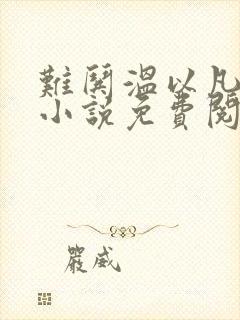 難鬨溫以凡
小說免費閱
嚴威